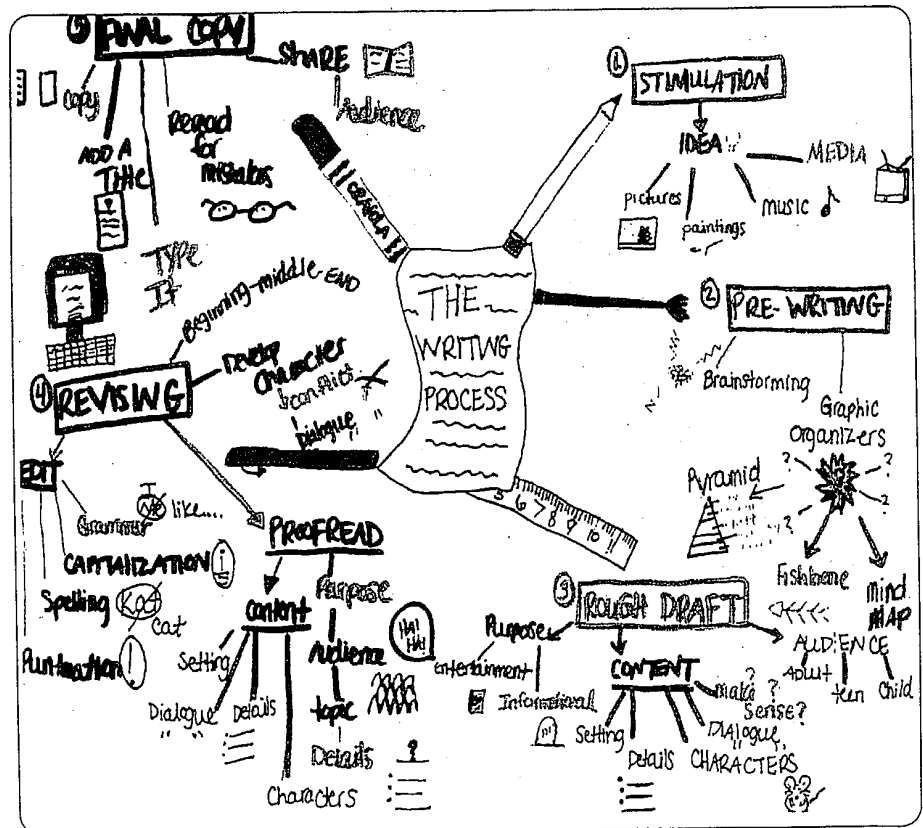 THE
WRITING
PROCESS
CRAYOLA
5 6 7 8 9 10 11
1 STIMULATION
IDEA
pictures
paintings
MUSIC
MEDIA
2 PRE-WRITING
Brainstorming
Graphic
Organizers
? ?
? ?
Pyramid
Fishbone
Mind
MAP
3 ROUGH DRAFT
Purpose
entertainment
Informational
CONTENT
Setting
Details
CHARACTERS
DIALOGUE
" "
make ?
Sense?
AUDIENCE
Adult
teen
Child
4 REVISING
Beginning-middle-END
Develop
Character
conflict
Dialogue
" "
EDIT
Grammar
I
Me like....
CAPITALIZATION
i
Spelling
Kat
Cat
Puntuation
!
PROOFREAD
Content
Setting
Dialogue
" "
Details
Characters
Purpose
Audience
HA!
HA!
topic
Details
5 FINAL COPY
Copy
ADD A
TITLE
TYPE
It
Reread
for
mistakes
SHARE
Audience